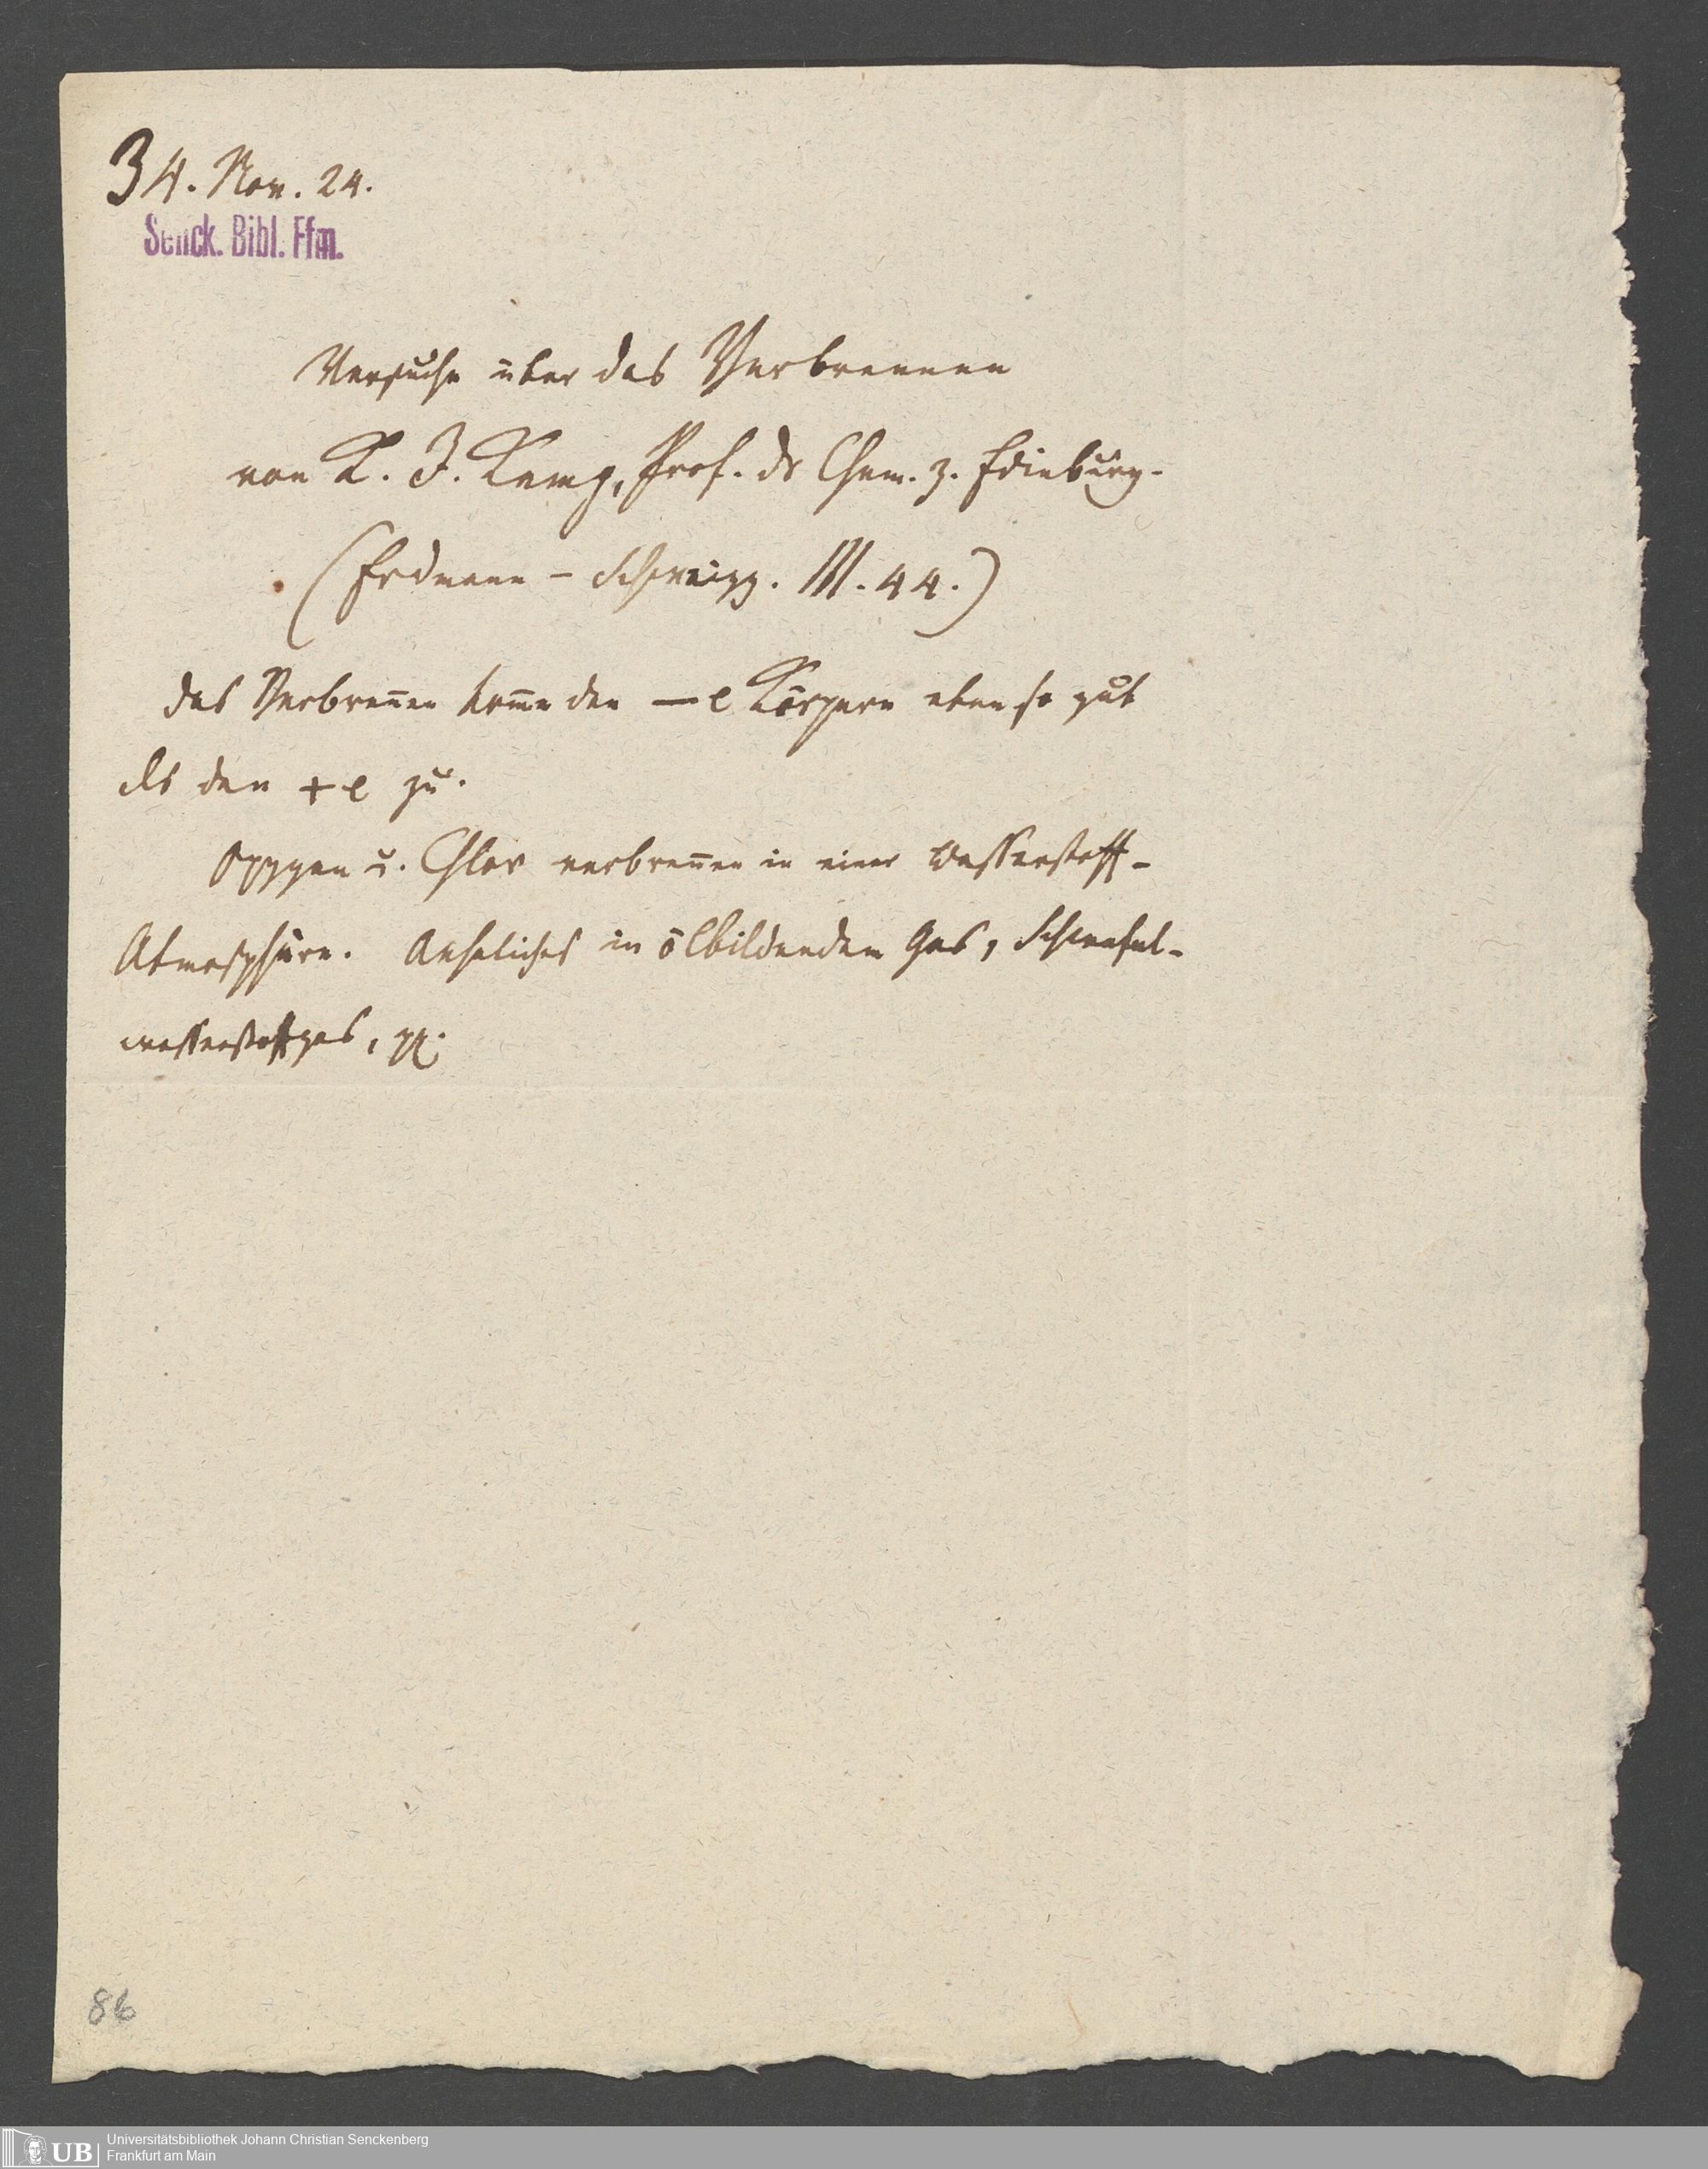 34. Nov. 24.
Senck. Bibl. Ffm.
Versuche über das Verbrennen
von K. J. Kemp, Prof. dr Chem. z. Edinburg.
(Erdmann – Schweigg. III. 44.)
das Verbren̄en kom̄e den — e Körpern eben so gut
als den + e zu.
Oxygen u. Chlor verbren̄en in einer Wasserstoff-
Atmosphäre. Aehnliches in ölbildendem Gas, Schwefel-
wasserstoffgas, pp.
86
UB
Universitätsbibliothek Johann Christian Senckenberg
Frankfurt am Main